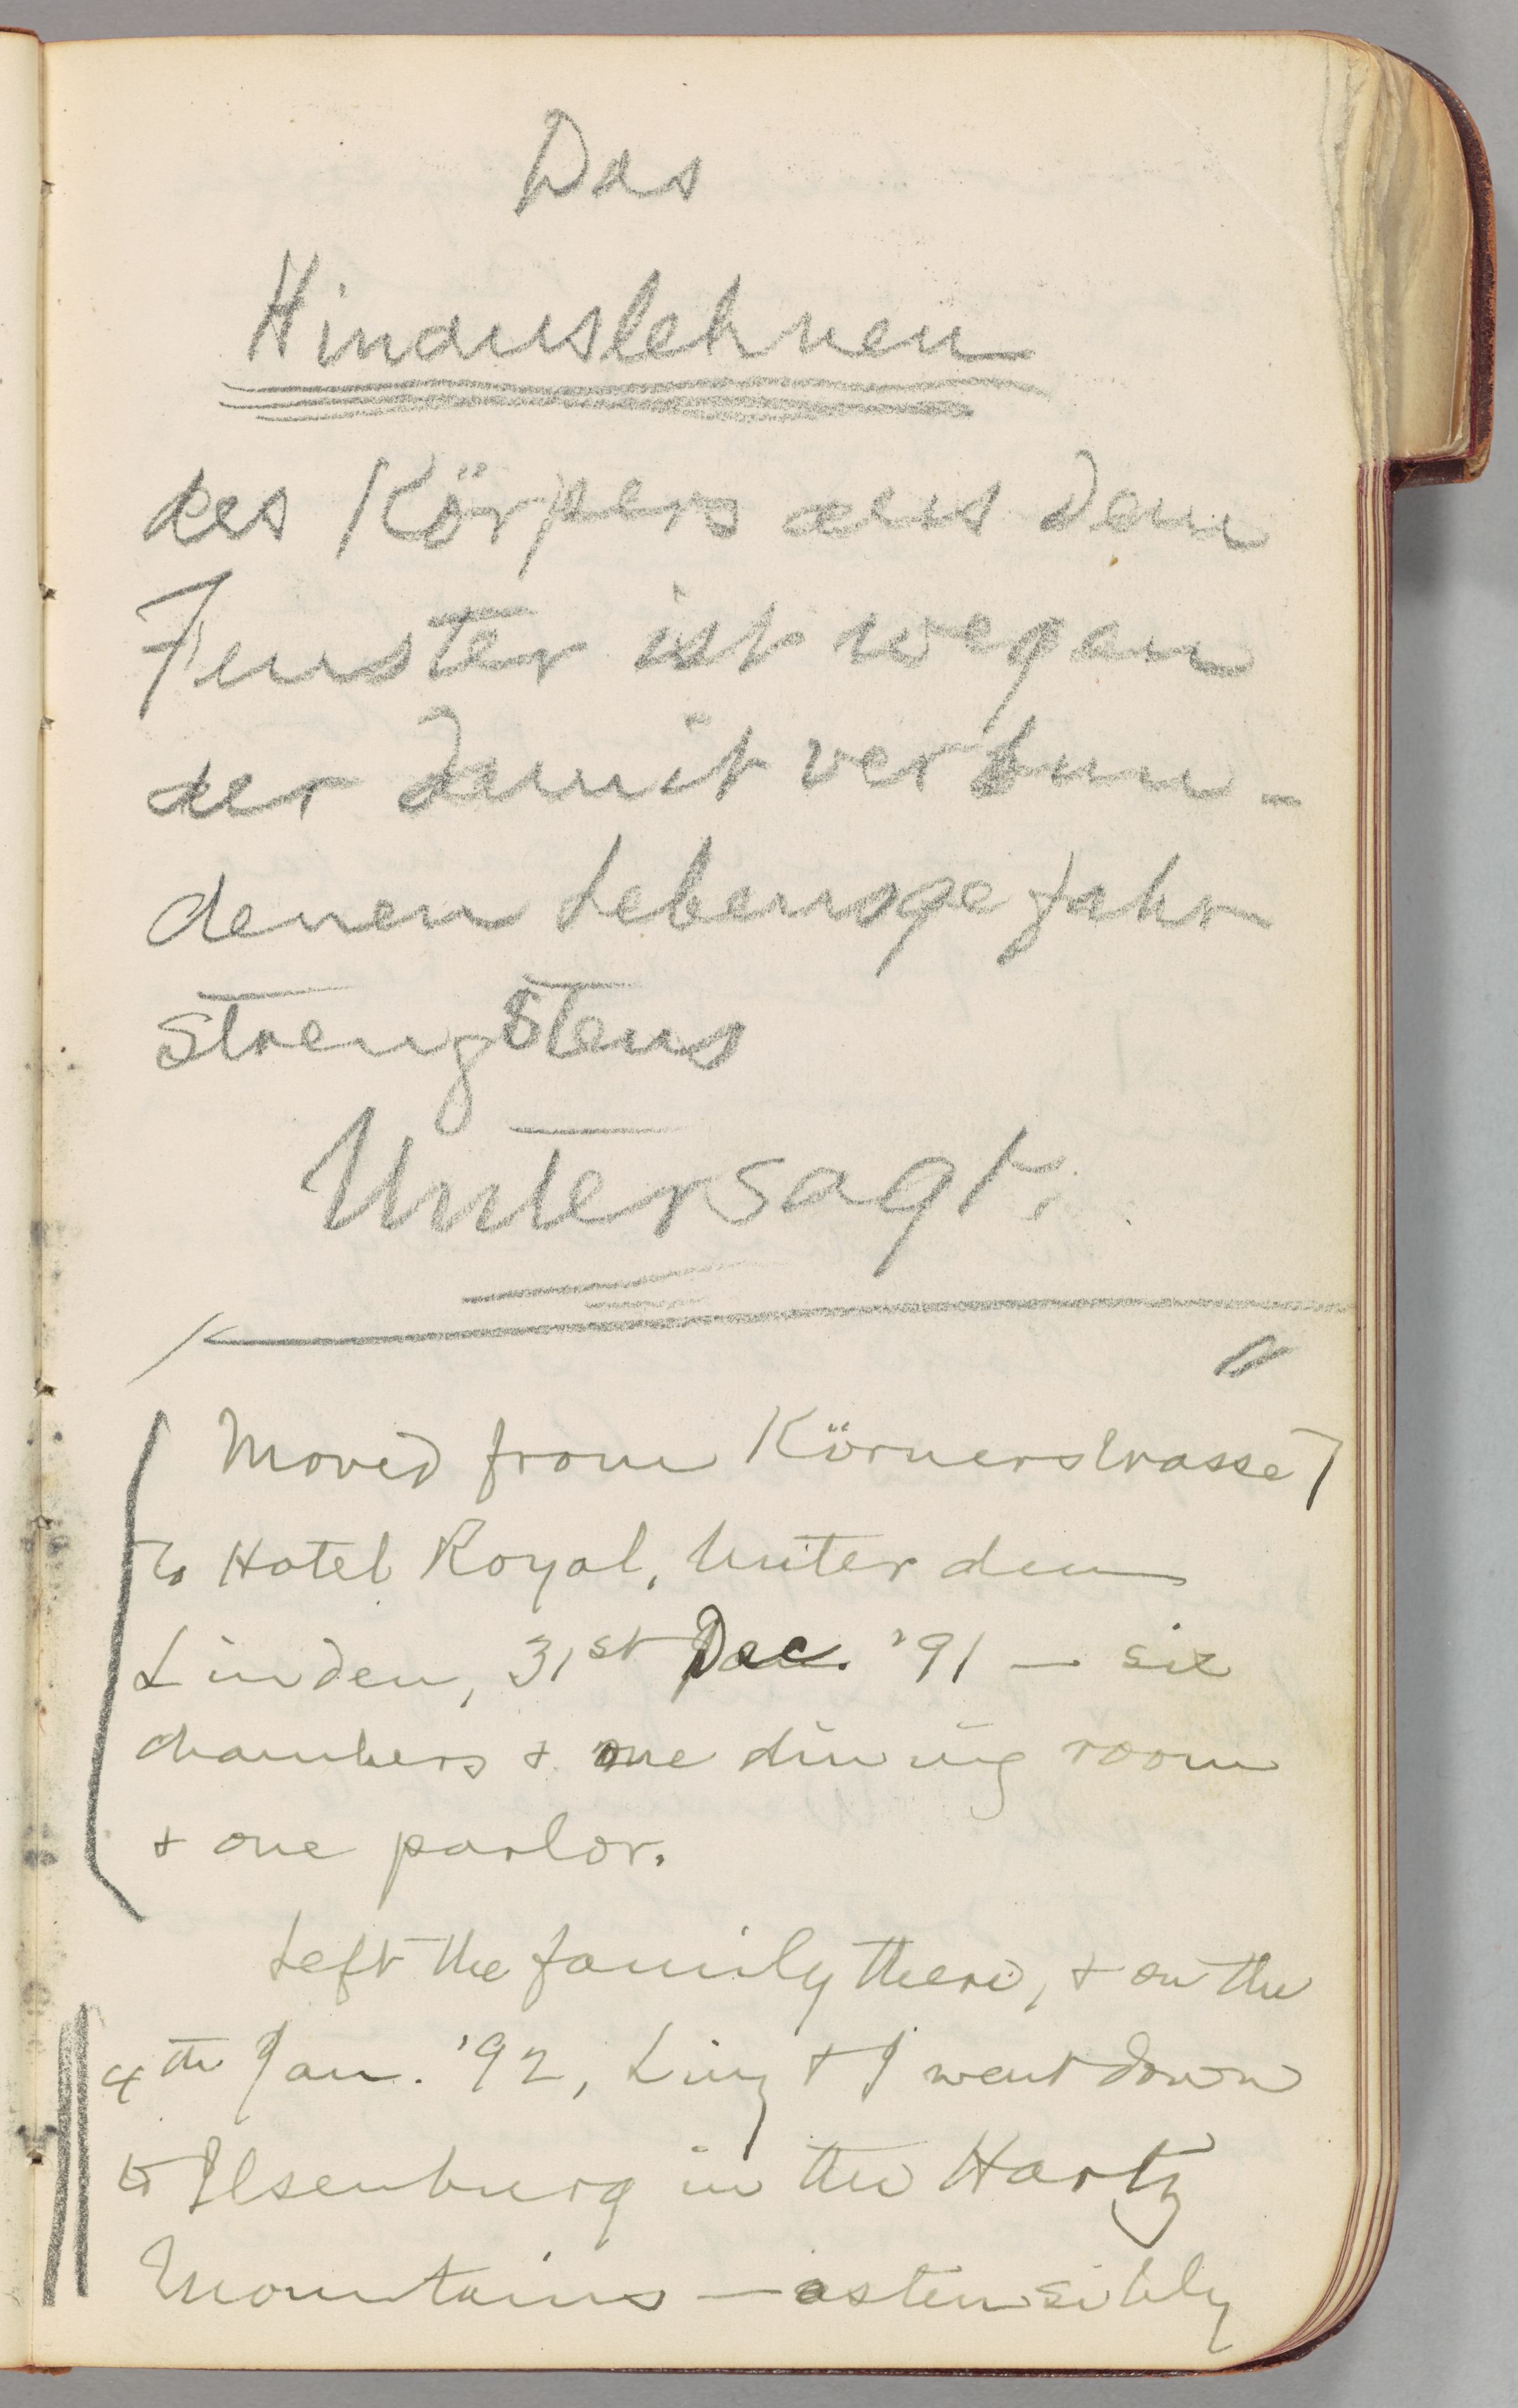 Das
Hinauslehnen
des Körpers aus dem
Fenster ist wegen
der damit verbun-
denen Lebensgefahr
strengstens
Untersagt.
Moved from Körnerstrasse 7
to Hotel Royal, Unter den
Linden, 31st Dec. '91 — six
chambers & one dining room
& one parlor.
Left the family there, & on the
4th Jan. '92, Livy & I went down
to Ilsenburg in the Hartz
Mountains — ostensibly